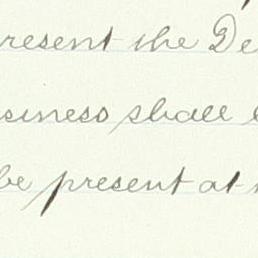 resent the De
siness shall
be present at